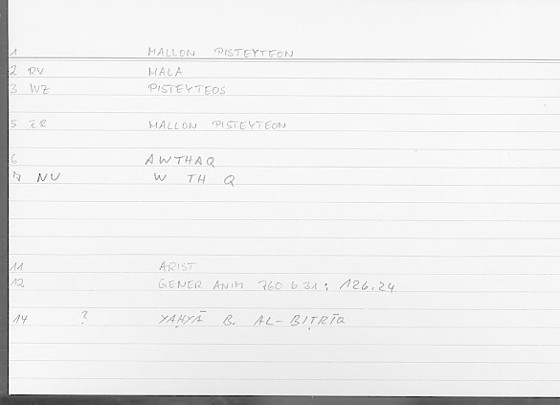 1 MALLON PISTEYTEON
2 RV MALA
3 WZ PISTEYTEOS
5 ER MALLON PISTEYTEON
6 AWTHAQ
7 NV W TH Q
11 ARIST
12 GENER ANIM 760 b 31 : 126.24
14 ? YAḤYĀ B. AL-BIṬRĪQ